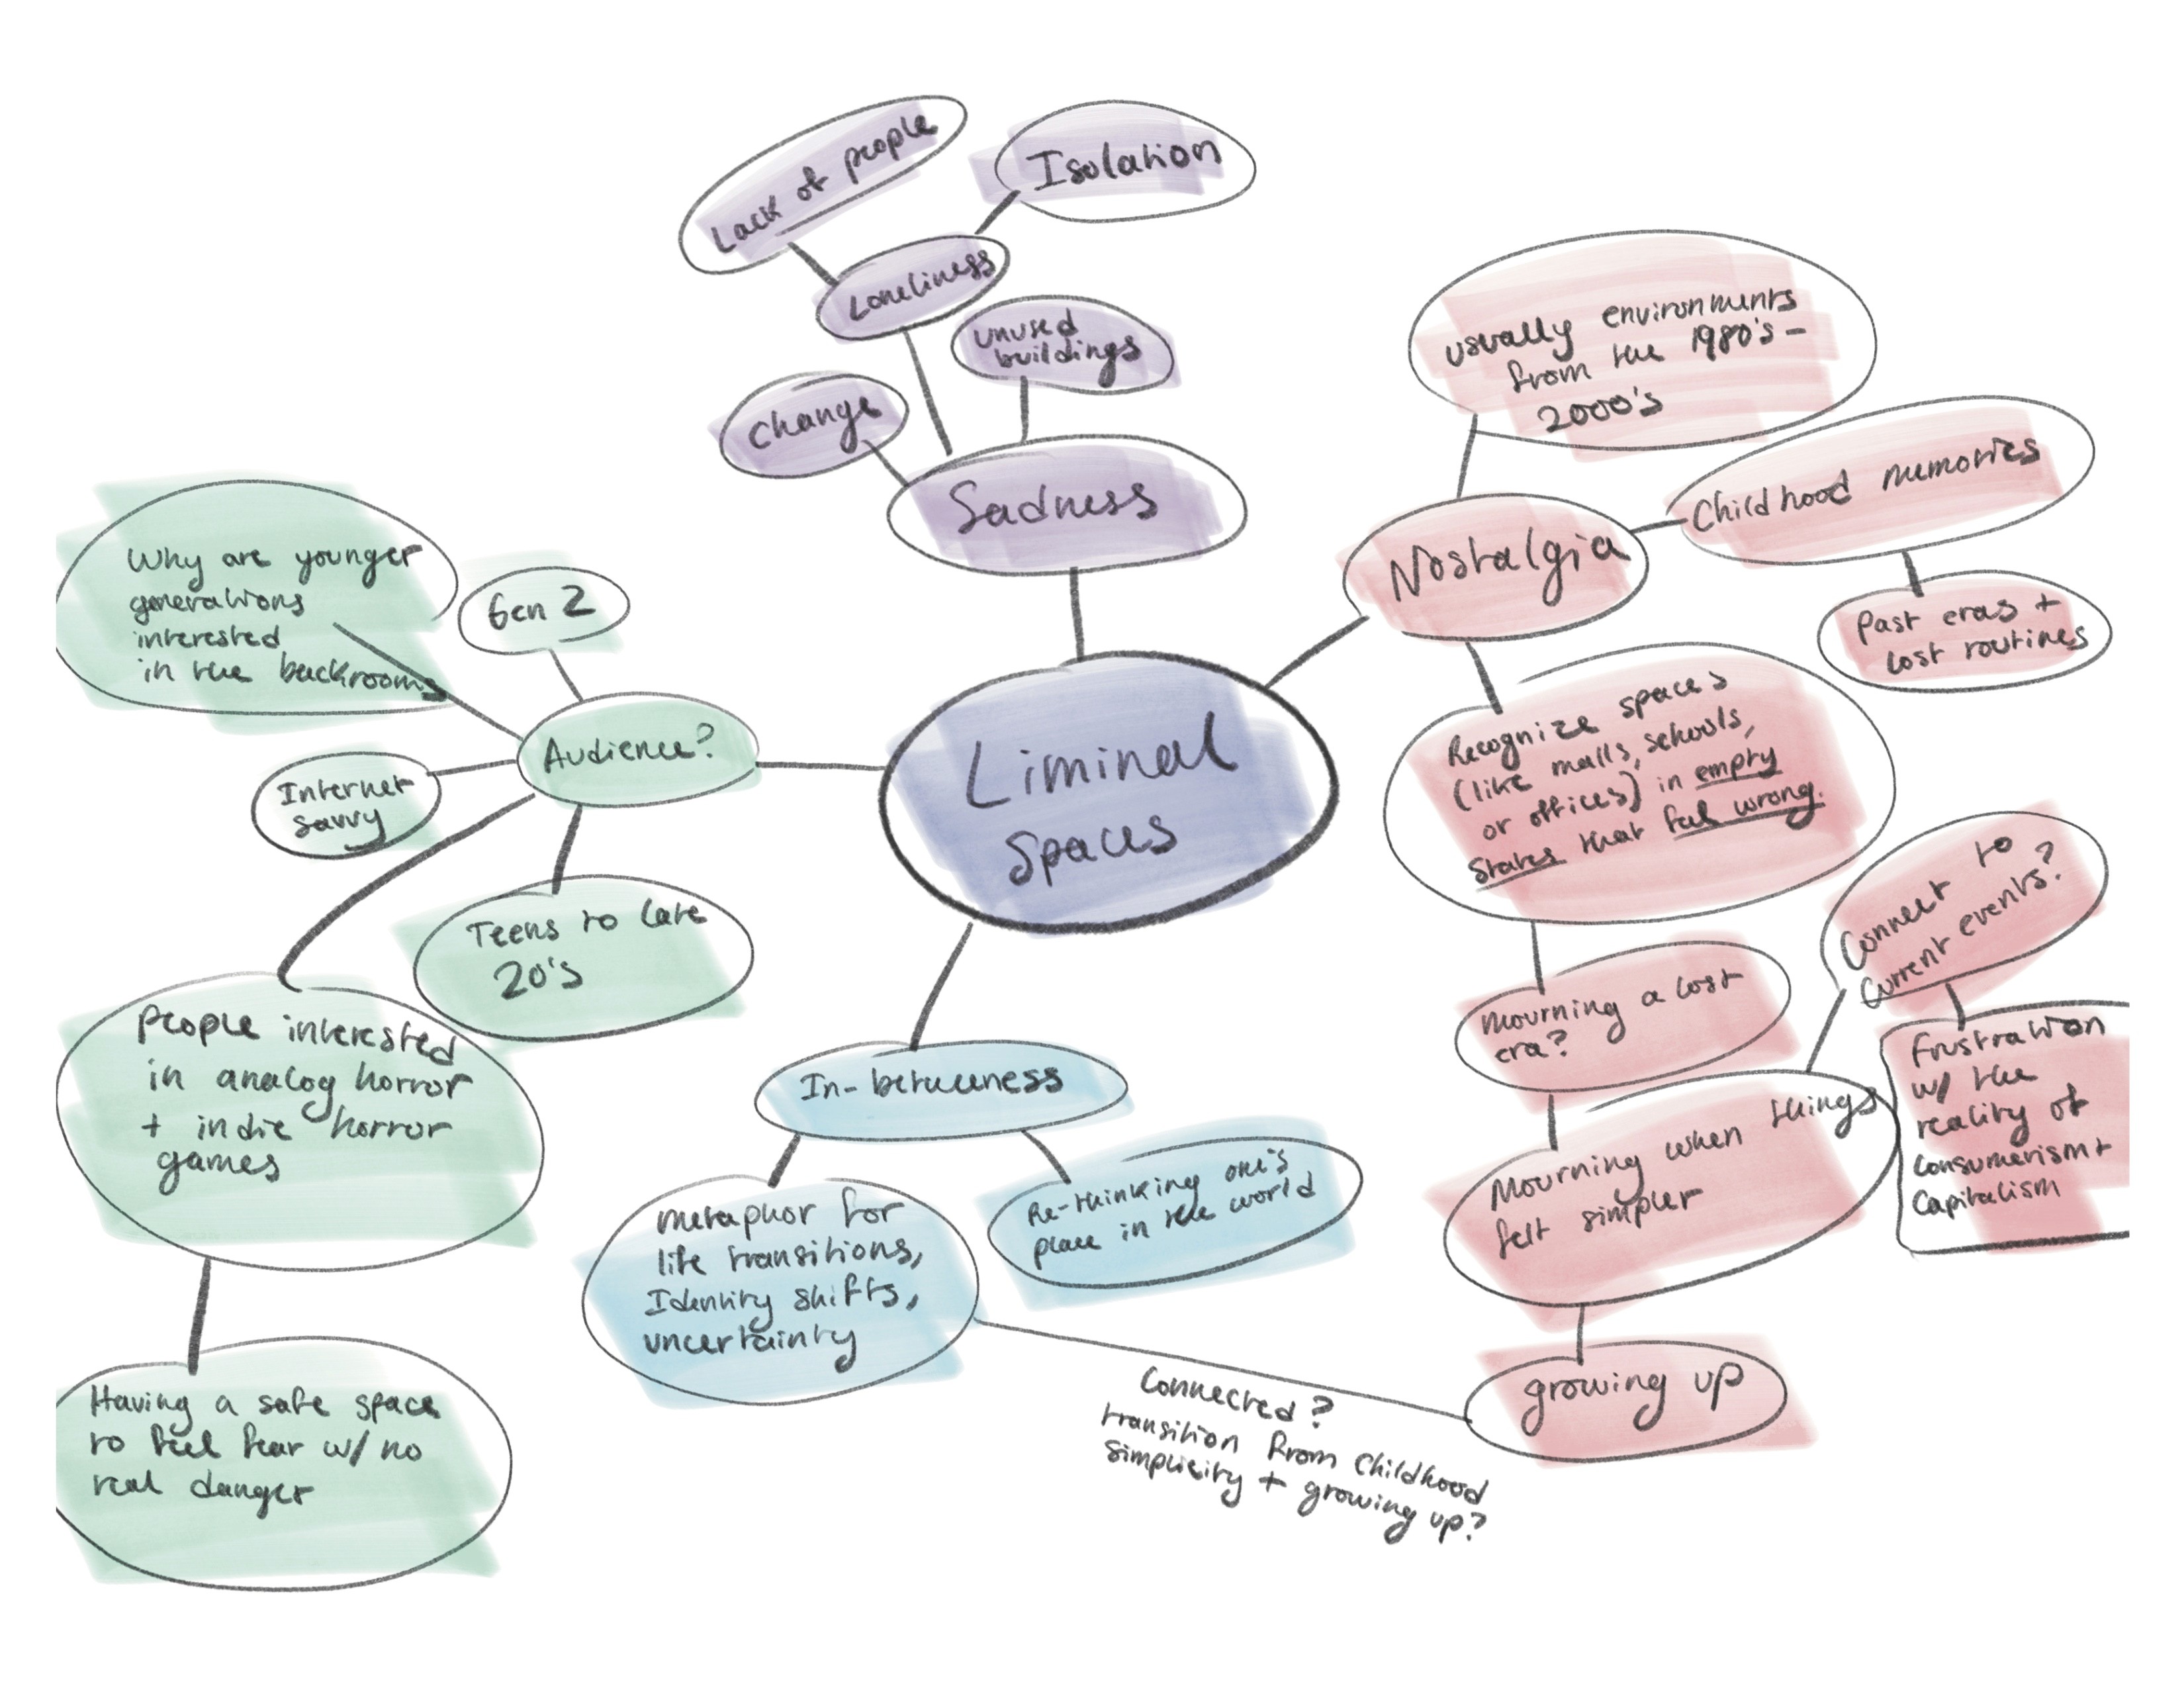 Lack of people
Isolation
Loneliness
unused
buildings
Change
Sadness
usually environments
from the 1980's -
2000's
Childhood memories
Nostalgia
Past eras +
lost routines
Why are younger
generations
interested
in the backrooms
Gen Z
Audience?
Internet
savvy
Teens to late
20's
People interested
in analog horror
+ indie horror
games
Having a safe space
to feel fear w/ no
real danger
Liminal
Spaces
Recognize spaces
(like malls, schools,
or offices) in empty
states that feel wrong.
Connect to
current events?
Mourning a lost
era?
Frustration
w/ the
reality of
consumerism +
Capitalism
Mourning when things
felt simpler
growing up
In-betweeness
metaphor for
life transitions,
Identity shifts,
uncertainty
Re-thinking one's
place in the world
Connected?
transition from childhood
simplicity + growing up?